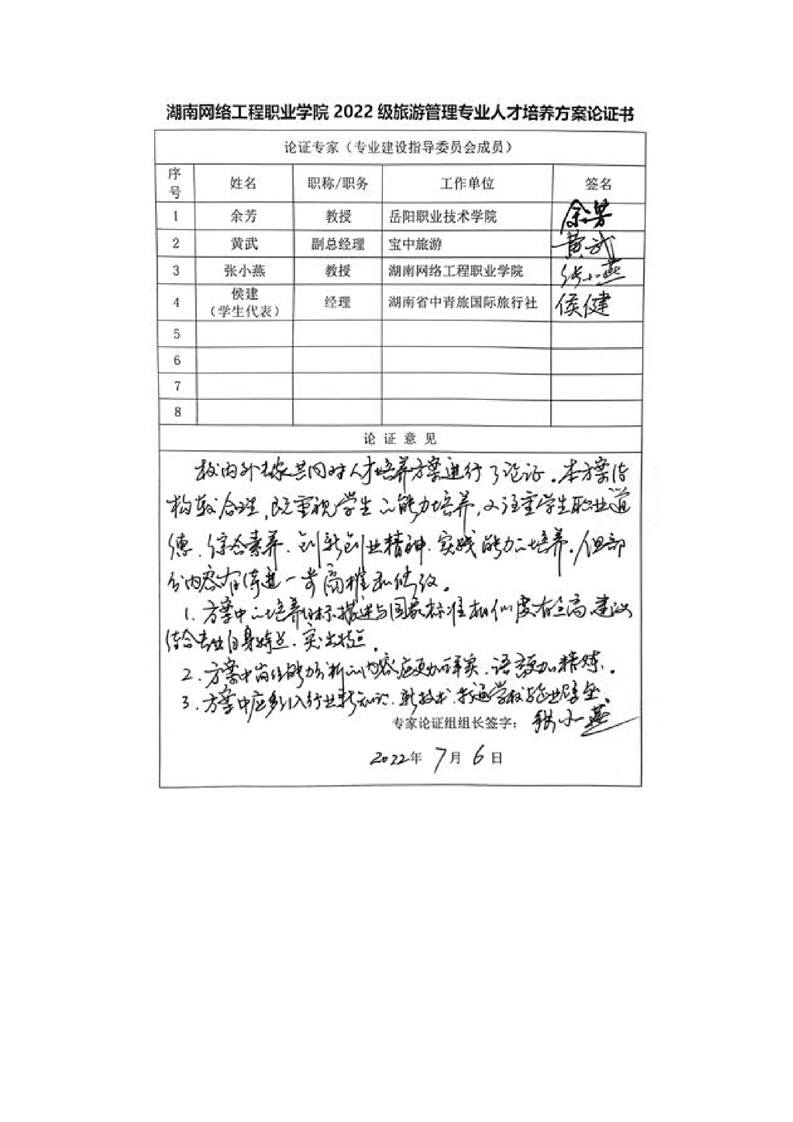 湖南网络工程职业学院 2022 级旅游管理专业人才培养方案论证书
论证专家（专业建设指导委员会成员）
序号 姓名 职称/职务 工作单位 签名
1 余芳 教授 岳阳职业技术学院 余芳
2 黄武 副总经理 宝中旅游 黄武
3 张小燕 教授 湖南网络工程职业学院 张小燕
4 侯建（学生代表） 经理 湖南省中青旅国际旅行社 侯健
5
6
7
8
论 证 意 见
校内外专家共同对人才培养方案进行了论证。本方案结
构较合理，既重视学生的能力培养，又注重学生职业道
德、综合素养、创新创业精神、实践能力的培养。但部
分内容有待进一步高推和修改。
1. 方案中的培养目标描述与国家标准相似度有些高，建议
结合专业自身特点，突出特点。
2. 方案中岗位能力分析的内容应更加详实，语言更加精炼。
3. 方案中应多引入行业新知识、新技术，打通学校与企业壁垒。
专家论证组组长签字： 张小燕
2022年 7月 6日